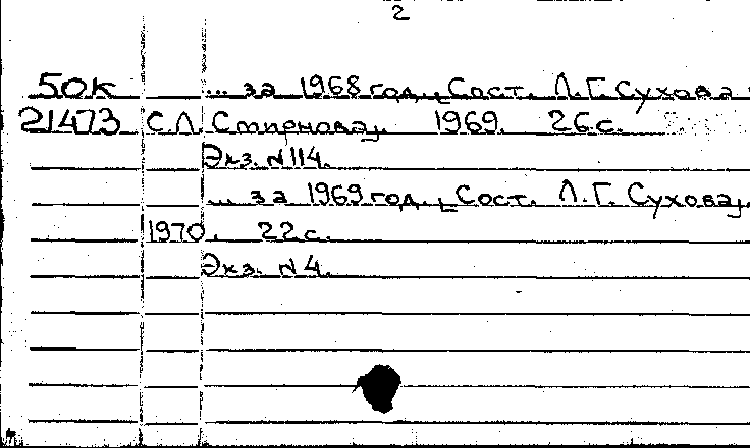 2
50К ... за 1968 год. [Сост. Л.Г. Сухова
21473 С.Л. Смирнова]. 1969. 26 с.
Экз. N 114.
... за 1969 год. [Сост. Л.Г. Сухова].
1970. 22 с.
Экз. N 4.